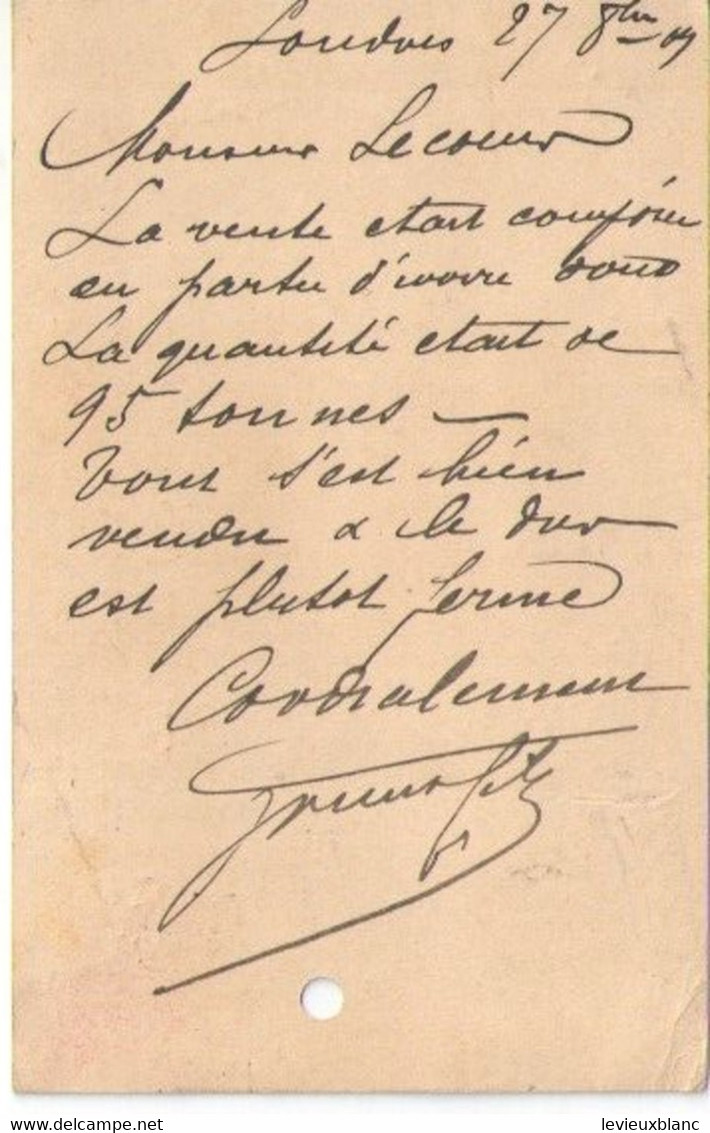 Londres 27 8bre 09
Monsieur Lecoeur
La vente etait composée
en partie d'ivoire dont
La quantité etait de
95 tonnes —
Tout s'est bien
vendu & le dur
est plutot ferme
Cordialement
Delcampe.net
levieuxblanc